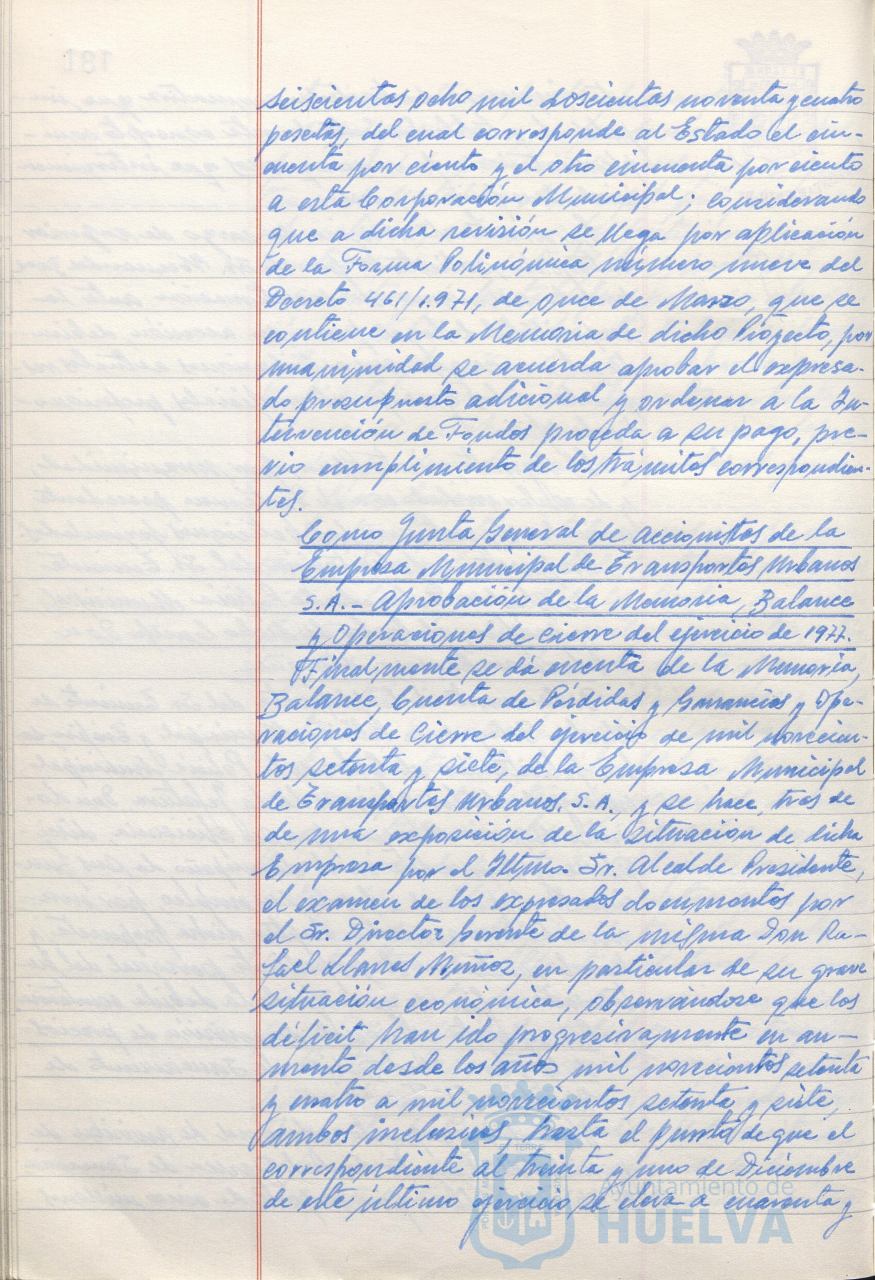 seiscientas ocho mil doscientas noventa y cuatro
pesetas, del cual corresponde al Estado el cin-
cuenta por ciento y el otro cincuenta por ciento
a esta Corporación Municipal; considerando
que a dicha revisión se llega por aplicación
de la Forma Polinómica número nueve del
Decreto 461/1.971, de once de Marzo, que se
contiene en la Memoria de dicho Proyecto, por
unanimidad se acuerda aprobar el expresa-
do presupuesto adicional y ordenar a la In-
tervención de Fondos proceda a su pago, pre-
vio cumplimiento de los trámites correspondien-
tes.
Como Junta General de Accionistas de la
Empresa Municipal de Transportes Urbanos
S.A. - Aprobación de la Memoria, Balance
y Operaciones de cierre del ejercicio de 1977.
Finalmente se dá cuenta de la Memoria,
Balance, Cuenta de Pérdidas y Ganancias y Ope-
raciones de Cierre del ejercicio de mil novecien-
tos setenta y siete, de la Empresa Municipal
de Transportes Urbanos. S.A., y se hace, tras de
de una exposición de la situación de dicha
Empresa por el Iltmo. Sr. Alcalde Presidente,
el examen de los expresados documentos por
el Sr. Director Gerente de la misma Don Ra-
fael Llanes Muñoz, en particular de su grave
situación económica, observándose que los
déficit han ido progresivamente en au-
mento desde los años mil novecientos setenta
y cuatro a mil novecientos setenta y siete,
ambos inclusives, hasta el punto de que el
correspondiente al treinta y uno de Diciembre
de este último ejercicio se eleva a cuarenta y
Ayuntamiento de
HUELVA